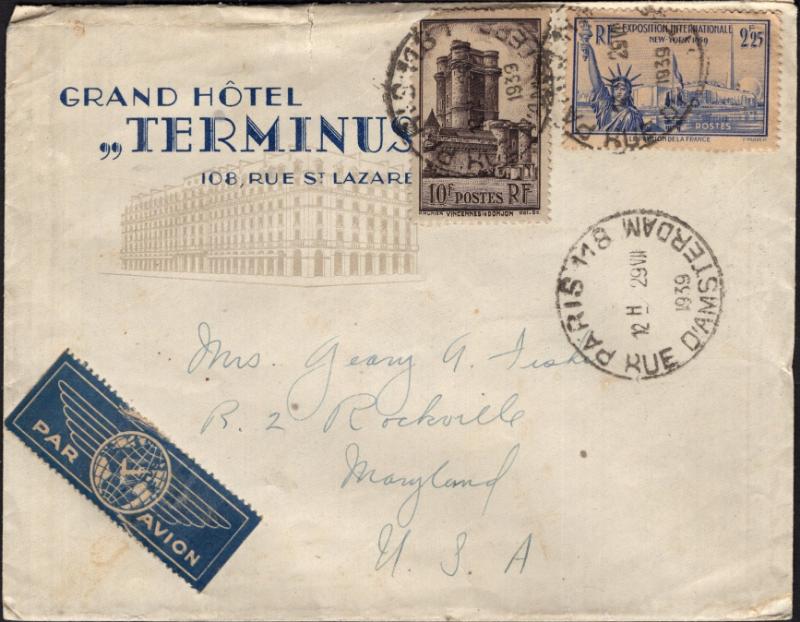 GRAND HÔTEL
„TERMINUS
108, RUE ST LAZARE
10F POSTES RF
VINCENNES LE DONJON
RF EXPOSITION INTERNATIONALE 2F25
NEW-YORK 1939
POSTES
LE PAVILLON DE LA FRANCE
1939
1939
PARIS 118
12H 29 VII
1939
RUE D'AMSTERDAM
Mrs. Geary A.
R. 2 Rockville
Maryland
U. S. A
PAR AVION